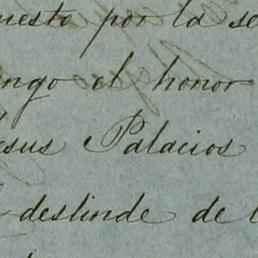 uesto por la se
ngo el honor
esus Palacios
deslinde de l